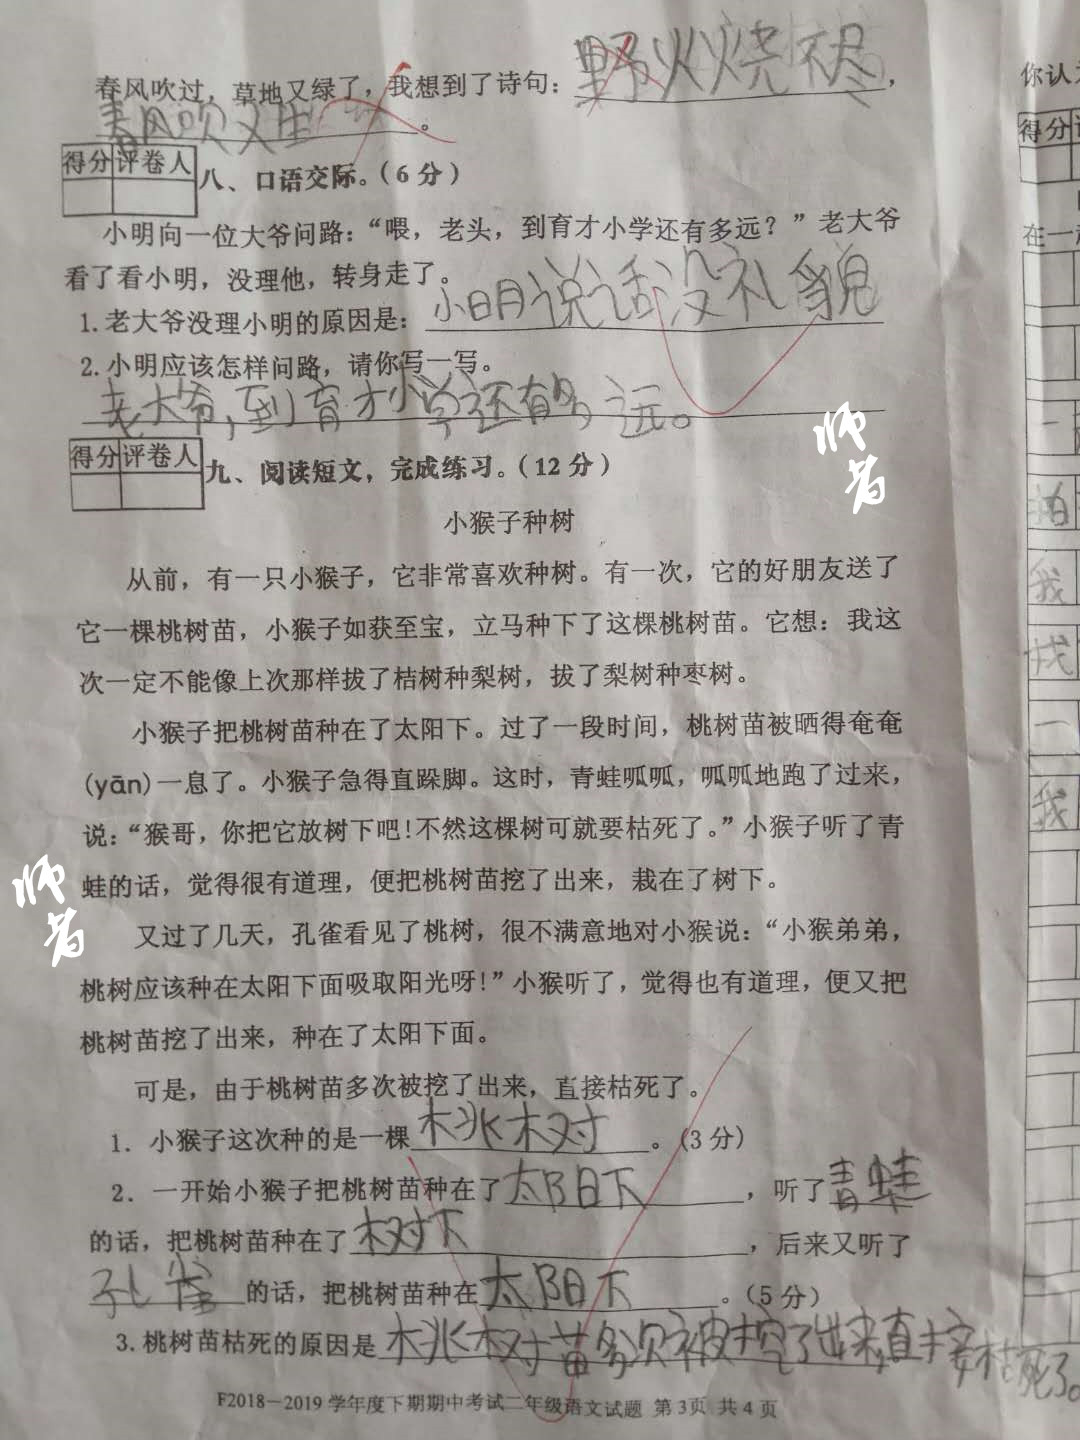 春风吹过，草地又绿了，我想到了诗句：野火烧不尽，
春风吹又生。
得分 评卷人
八、口语交际。（6分）
小明向一位大爷问路：“喂，老头，到育才小学还有多远？”老大爷
看了看小明，没理他，转身走了。
1.老大爷没理小明的原因是：小明说话没礼貌
2.小明应该怎样问路，请你写一写。
老大爷，到育才小学还有多远。
得分 评卷人
九、阅读短文，完成练习。（12分）
小猴子种树
从前，有一只小猴子，它非常喜欢种树。有一次，它的好朋友送了
它一棵桃树苗，小猴子如获至宝，立马种下了这棵桃树苗。它想：我这
次一定不能像上次那样拔了桔树种梨树，拔了梨树种枣树。
小猴子把桃树苗种在了太阳下。过了一段时间，桃树苗被晒得奄奄
(yān)一息了。小猴子急得直跺脚。这时，青蛙呱呱，呱呱地跑了过来，
说：“猴哥，你把它放树下吧！不然这棵树可就要枯死了。”小猴子听了青
蛙的话，觉得很有道理，便把桃树苗挖了出来，栽在了树下。
又过了几天，孔雀看见了桃树，很不满意地对小猴说：“小猴弟弟，
桃树应该种在太阳下面吸取阳光呀！”小猴听了，觉得也有道理，便又把
桃树苗挖了出来，种在了太阳下面。
可是，由于桃树苗多次被挖了出来，直接枯死了。
1．小猴子这次种的是一棵桃树。（3分）
2．一开始小猴子把桃树苗种在了太阳下，听了青蛙
的话，把桃树苗种在了树下，后来又听了
孔雀的话，把桃树苗种在太阳下。（5分）
3.桃树苗枯死的原因是桃树苗多次被挖了出来，直接枯死了。
F2018－2019学年度下期期中考试二年级语文试题 第3页 共4页
你认为
得分
在一
一
拍
我
找
一
我
师者
师者